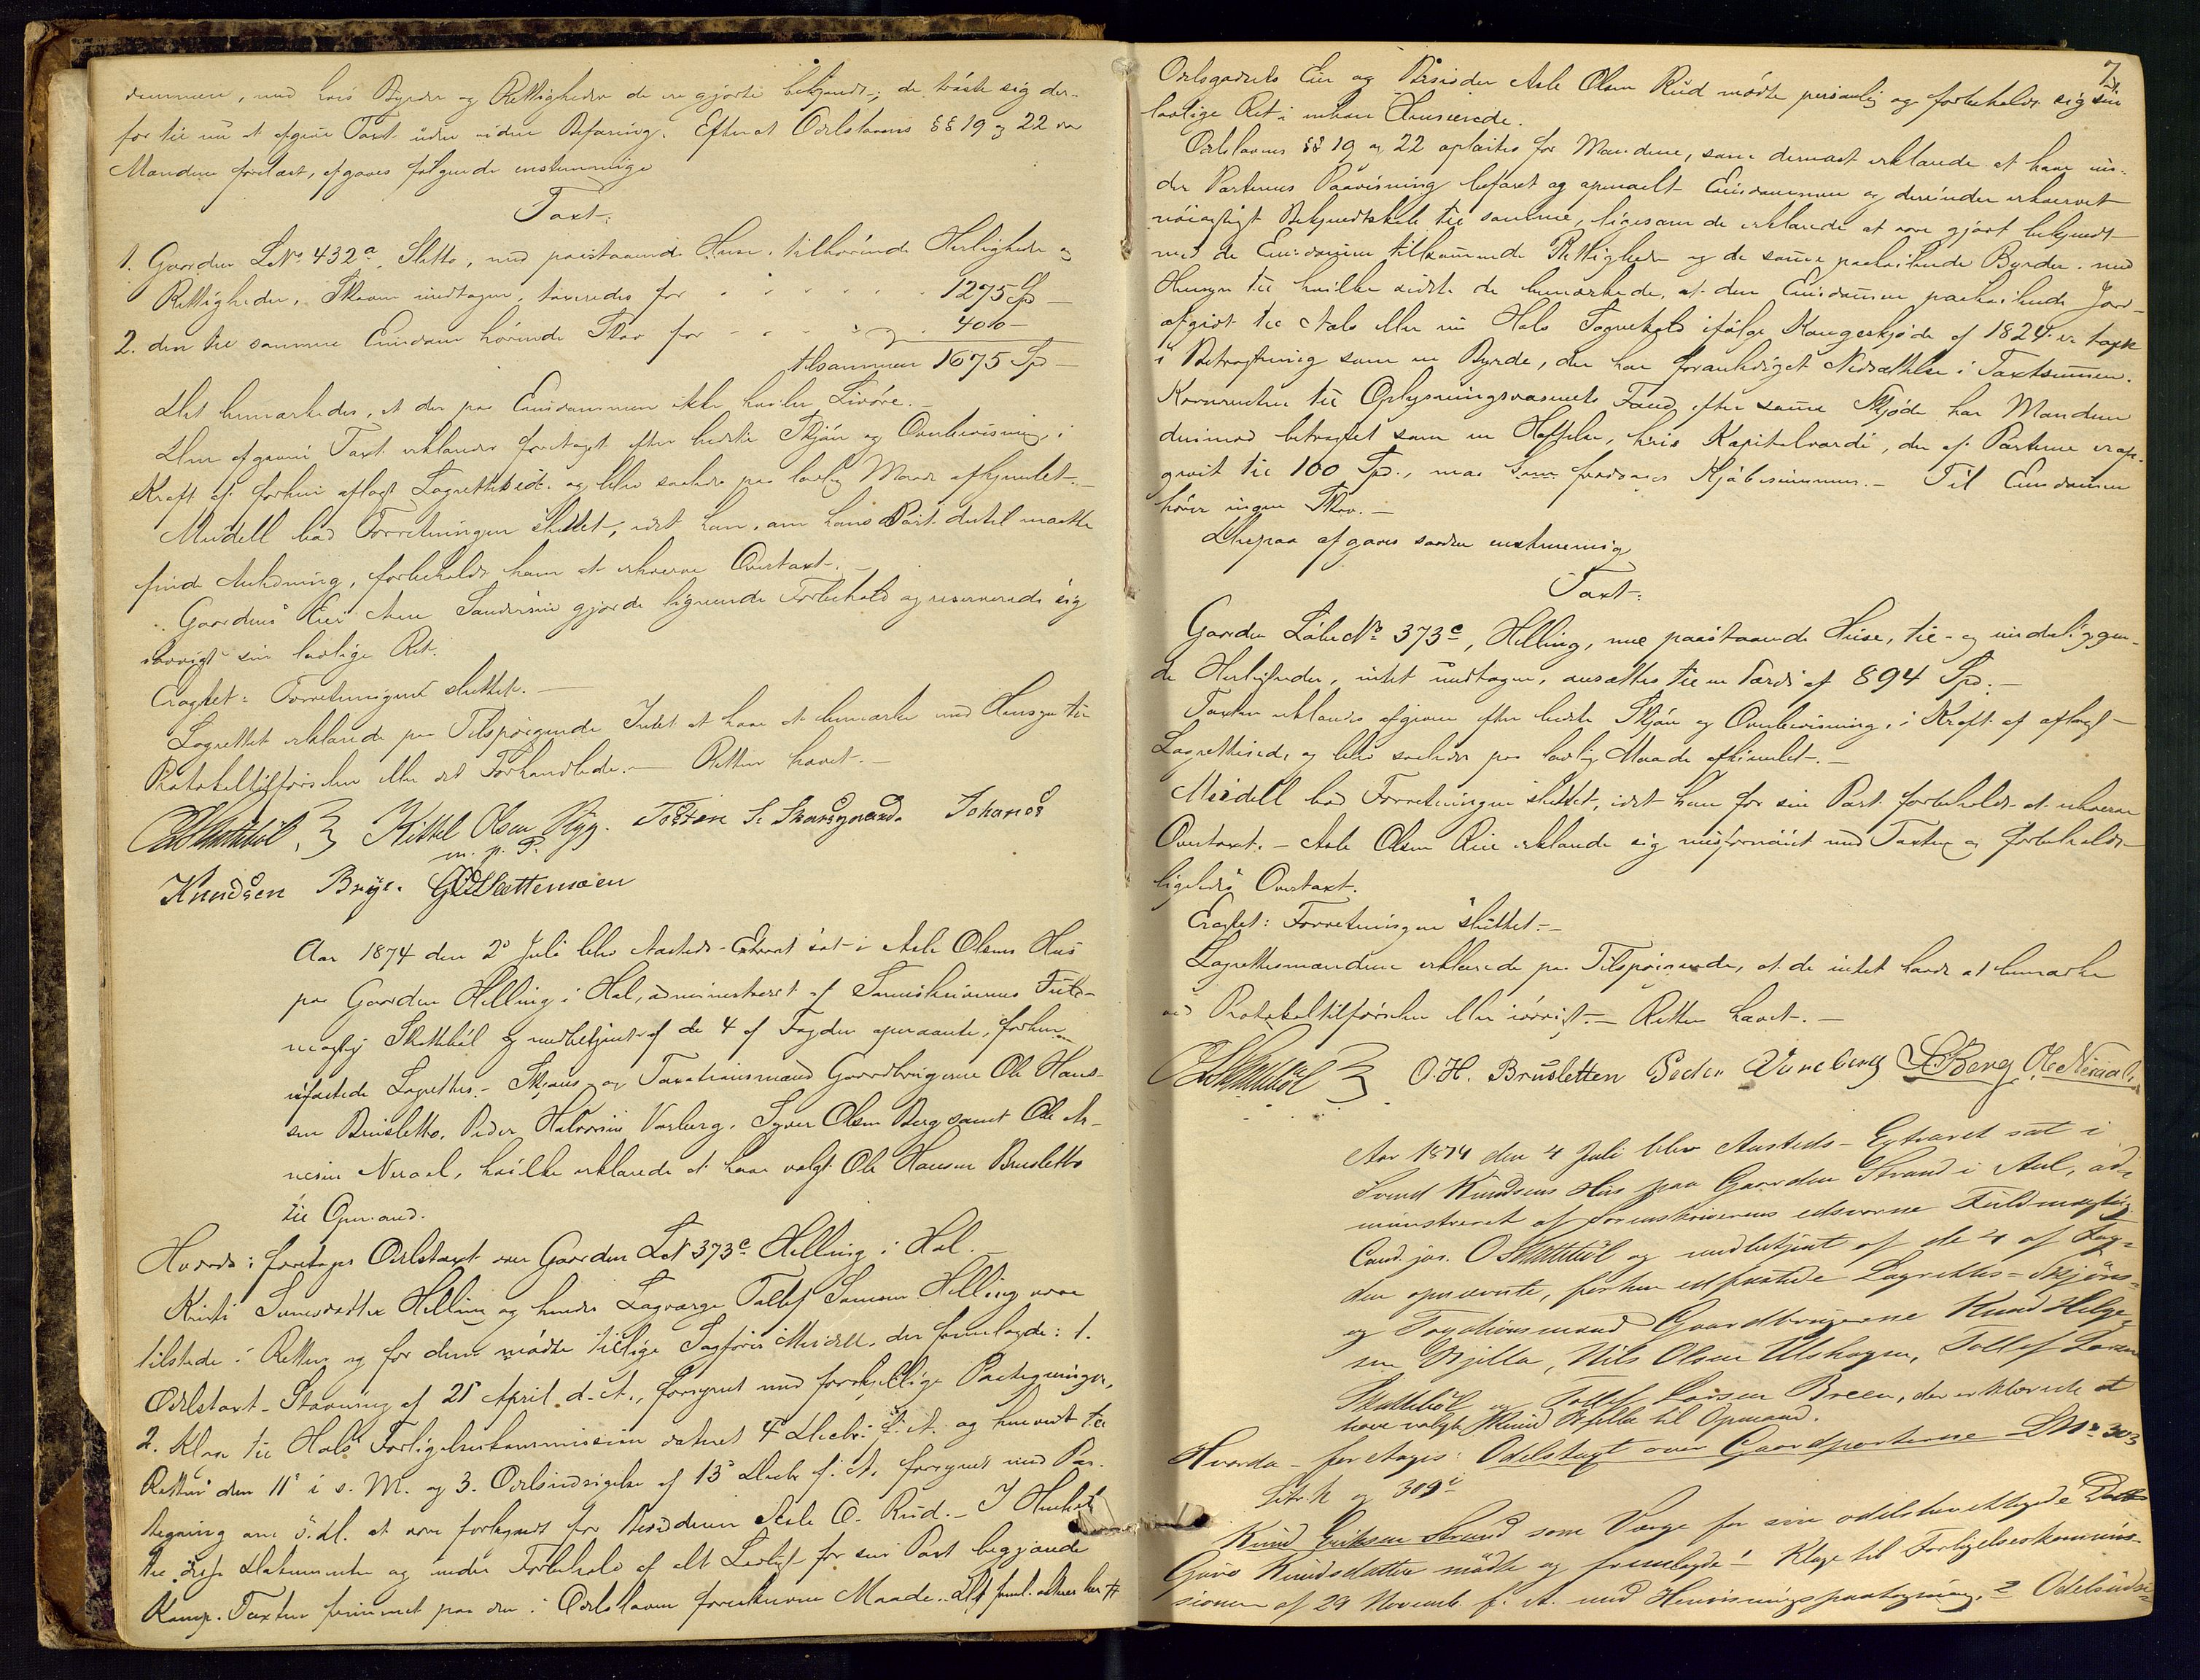 dommen, med hvis Byrder og Rettigheder de ere gjorte bekjendt; de tröste sig der-
for til nu at afgive Taxt uden videre Befaring. Efterat Odelslovens §§ 19 og 22 var
Mændene forelæst, afgaves følgende enstemmige
Taxt:
1. Gaarden L.No. 432a Sletto, med paastaaende Huse, tilhørende Herligheder og
Rettigheder, Skoven undtagen, taxeredes for 1275 Spd
2. den til samme Eiendom hørende Skov for 400 -
tilsammen 1675 Spd -
Det bemærkedes, at der paa Eiendommen ikke hviler Livöre.
Den afgivne Taxt erklæredes foretaget efter bedste Skjön og Overbevisning, i
Kraft af forhen aflagt Lagrettesed og blev saaledes paa lovlig Maade afhjemlet.-
Meidell bad Forretningen sluttet, idet han, om hans Part dertil maatte
finde Anledning, forbeholdt ham at erhverve Overtaxt.-
Gaardens Eier Arne Sanderssen gjorde lignende Forbehold og reserverede sig
iövrigt sin lovlige Ret.
Eragtet: Forretningen sluttet.-
Lagrettet erklærede paa Tilspørgende Intet at have at bemærke med Hensyn til
Protokoltilförselen eller det Forhandlede.- Retten hævet.-
OSkattebøl. Kittel Olsen Ryg. Tosten S. Skarsgaard. Johanes
m. p. P.
Knudsen Brye. GOSlettemoen
Aar 1874 den 2den Juli blev Aasteds-Extraret sat i Asle Olsens Hus
paa Gaarden Helling i Hol, administreret af Sorenskriverens Fuld-
mægtig Skattebøl og medbetjent af de 4 af Fogden opnævnte, forhen
edfæstede Lagrettes-, Skjøns- og Taxationsmænd Gaardbrugerne Ole Hans-
sen Brusletto, Peder Halvorsen Varberg, Syver Olsen Berg samt Ole Ar-
nesen Neraal, hvilke erklærede at have valgt Ole Hansen Brusletto
til Opmand.
Hvorda: foretages Odelstaxt over Gaarden L.N. 373c Helling i Hol.
Kristi Svensdatter Helling og hendes Lagværge Tollef Helling vare
tilstede i Retten og for dem mødte tillige Sagfører Meidell, der fremlagde: 1.
Odelstaxt-Stævning af 21 April d. A., forsynet med forskjellige Paategninger,
2. Klage til Hols Forligelseskommission dateret 4 Decbr f. A. og henvist til
Retten den 11te i s. M. og 3. Odelsindsigelse af 13de Decbr f. A. forsynet med Paa-
tegning om s. D. at være forkyndt for Besidderen Asle O. Rud.- I Henhold
til disse Dokumenter og under Forbehold af alt Lovligt for sin Part begjærede
Komp. Taxten fremmet paa den i Odelsloven foreskrevne Maade.
7
Odelsgodsets Eier og Besidder Asle Olsen Rud mødte personlig og forbeholdt sig sin
lovlige Ret i enhver Henseende.
Odelslovens §§ 19 og 22 oplæstes for Mændene, som dernæst erklærede at have un-
der Parternes Paavisning befaret og opmaalt Eiendommen og derunder erhvervet
nöiagtigt Bekjendtskab til samme, ligesom de erklærede at være gjort bekjendt
med de Eiendommen tilkommende Rettigheder og de samme paahvilende Byrder, med
Hensyn til hvilke sidste de bemærkede, at den Eiendommen paahvilende Jord-
afgivt til Aals eller nu Hols Sognekald ifølge Kongeskjøde af 1824 er tagen
i Betragtning som en Byrde, der har foranlediget Nedsættelse i Taxtsummen.
Kornrenten til Oplysningsvæsenets Fond efter samme Skjøde har Mændene
derimod betragtet som en Heftelse, hvis Kapitalværdi, der af Parterne er op-
givet til 100 Spd., maa fradrages Kjøbesummen.- Til Eiendommen
hører ingen Skov.-
Derpaa afgaves saadan enstemmig
Taxt:
Gaarden LøbeNo 373c, Helling, med paastaaende Huse, til- og underliggen-
de Herligheder, intet undtagen, ansættes til en Værdi af 894 Spd.-
Taxten erklæredes afgiven efter bedste Skjön og Overbevisning, i Kraft af aflagt
Lagrettesed, og blev saaledes paa lovlig Maade afhjemlet.-
Meidell bad Forretningen sluttet, idet han for sin Part forbeholdt at erhverve
Overtaxt.- Asle Olsen Rud erklærede sig misfornöiet med Taxten og forbeholdt
ligeledes Overtaxt.
Eragtet: Forretningen sluttet.-
Lagrettesmændene erklærede paa Tilspørgende, at de intet havde at bemærke
ved Protokoltilførselen eller iövrigt.- Retten hævet.-
OSkattebøl O.H. Brusletten Peder Vareberg SOBerg Ole Neraal
Aar 1874 den 4 Juli blev Aasteds-Extraret sat i
Svend Knudsens Hus paa Gaarden Strand i Aal, ad-
ministreret af Sorenskriverens edsvorne Fuldmægtig
Cand. jur. O Skattebøl og medbetjent af de 4 af Fog-
den opnævnte, forhen edfæstede Lagrettes- Skjöns-
og Taxationsmænd Gaardbrugerne Knud Helge-
sen Kjilla, Nils Olsen Ulshagen, Tollef Larsen
Skattebøl og Tollef Larsen Breen, der erklærede at
have valgt Knud Kjilla til Opmand.
Hvorda- foretages: Odelstaxt over Gaardparterne LNo 303
Litr. h og 309i
Knud Eriksen Strand som Værge for sin odelsberettigede Datter
Guro Knudsdatter mødte og fremlagde 1 Klage til Forligelseskommis-
sionen af 29 Novemb. f. A. med Henvisningspaategning, 2 Odelsindsi-